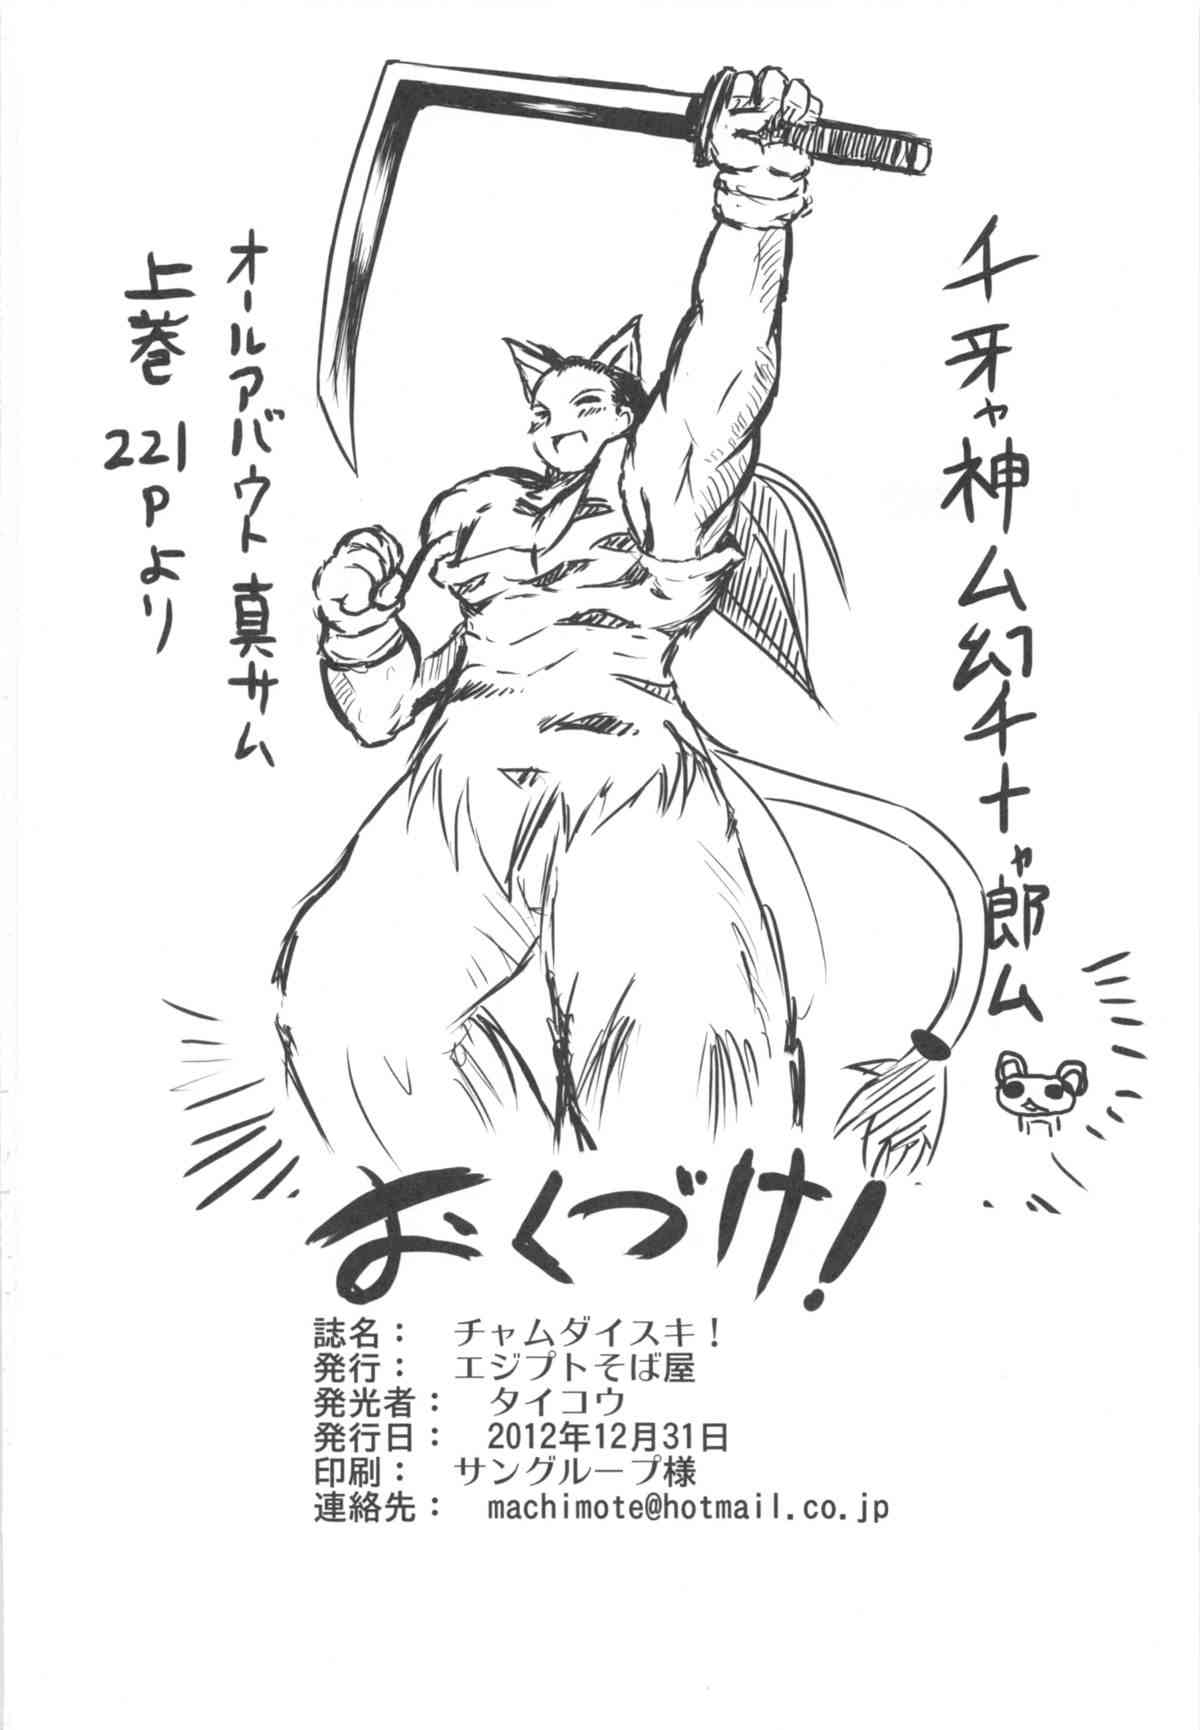 チ牙ャ神ム幻チ十ャ郎ム
オールアバウト真サム
上巻 221pより
おくづけ！
誌名： チャムダイスキ！
発行： エジプトそば屋
発光者： タイコウ
発行日： 2012年12月31日
印刷： サングループ様
連絡先： machimote@hotmail.co.jp